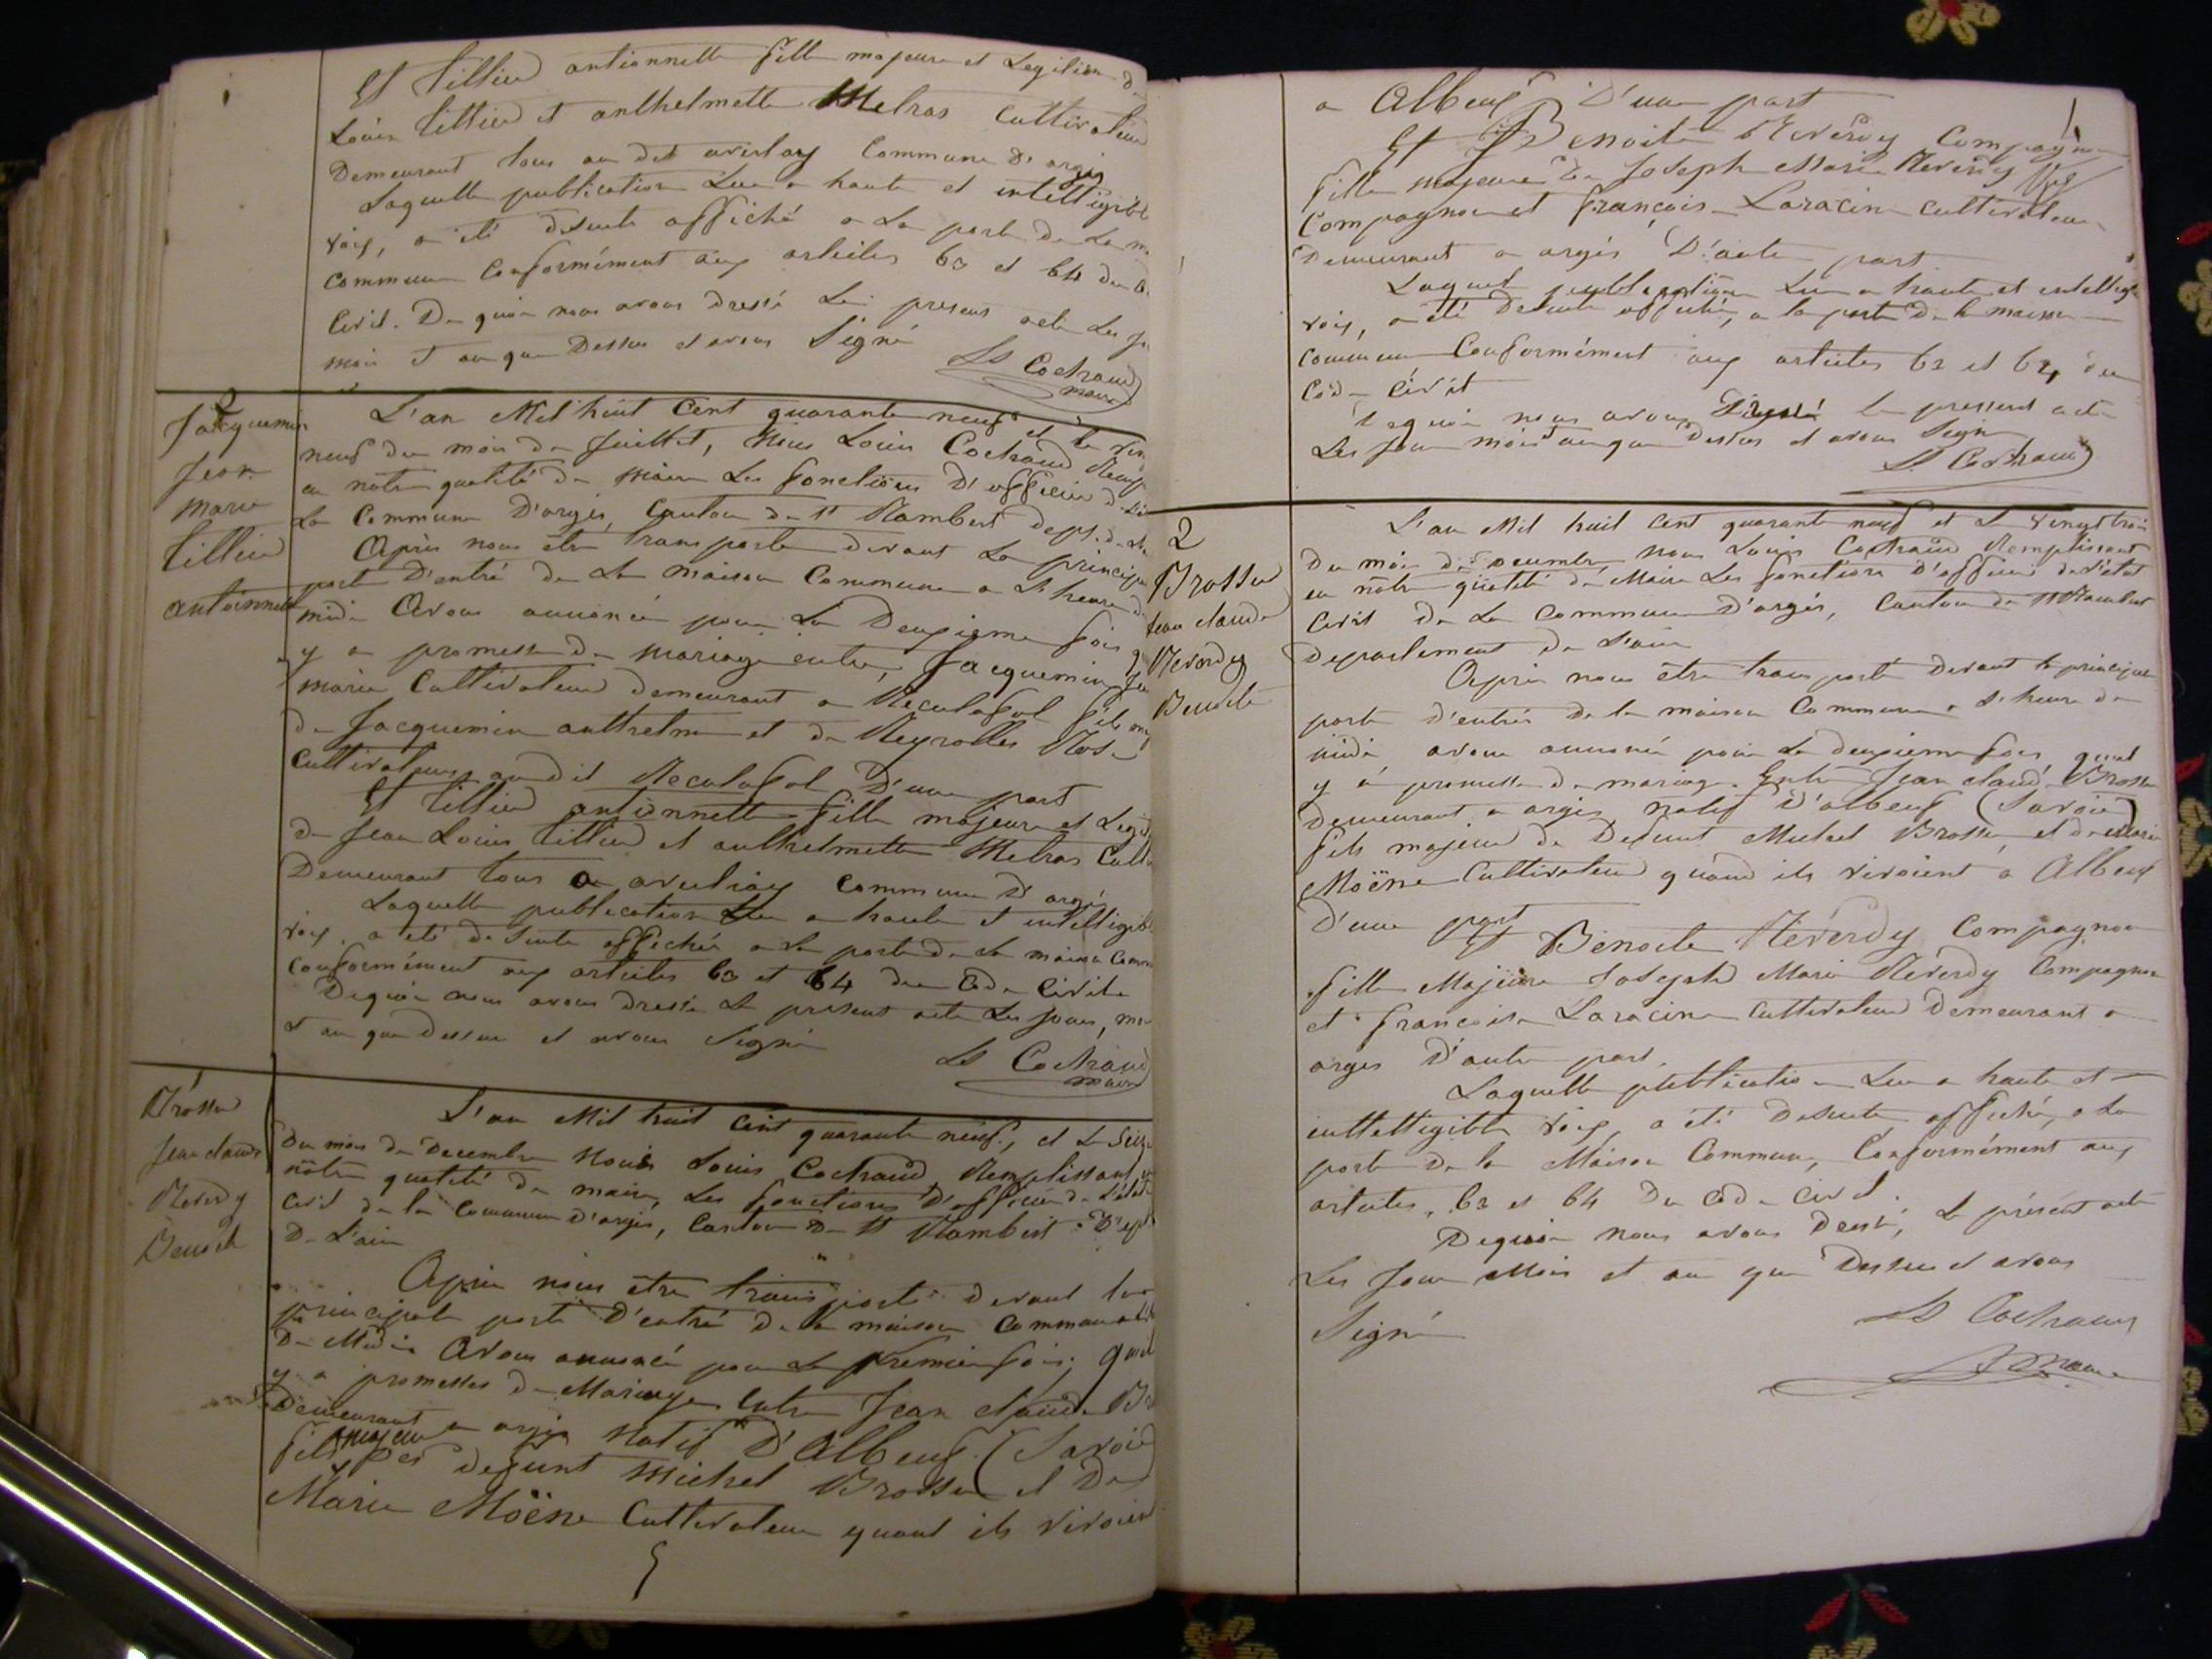 Et Tillier antionnette fille majeure et Legitime de
Louis Tillier et anthelmette Melras Cultivateur
Demeurant tous au dit averlay Commune D'argis
Laquelle publication Lue a haute et intelligible
voix, a été desuite affiché a La porte de La m
Commune Conformément aux articles 63 et 64 du C
Civil. De quoi nous avons dressé Le present acte Les jo
mois et an que Dessus et avons Signé
Ls Cochaud
maire
2
Jacquemin
Jean
Marie
Tillier
antoinnette
L'an Mil huit Cent quarante neuf et le vin
neuf du mois de Juillet, Nous Louis Cochaud Remp
en notre qualité de Maire Les fonctions D'officier d
La Commune D'argis, Canton de St Rambert dept. de
Après nous être transporté devant La principa
porte D'entré de La Maison Commune a L'heure d
midi Avons annoncé pour La Deuxieme fois q
y a promesse de mariage entre, Jacquemin Je
marie Cultivateur demeurant a Reculafol fils m
de Jacquemin anthelme et de Reyrolles Rose
Cultivateurs au dit Reculafol D'une part
Et Tillier antionnette fille majeure et Legi
de Jean Louis Tillier et anthelmette Melras Cult
Demeurant tous a averliay Commune D'argis
Laquelle publication Lue a haute et intelligibl
voix, a été de Suite affichée a La porte de La maison Comm
Conformément aux articles 63 et 64 du Code Civile
Dequoi nous avons dressé Le present acte Les jour, mo
et an que dessus et avons Signé
Ls Cochaud
maire
1
Brosse
Jean claude
Reverdy
Benoite
L'an Mil huit Cent quarante neuf, et Le Seize
Du mois de Decembre Nous Louis Cochaud Remplissant en
notre qualité de maire, Les fonctions D'officier de L'état
Civil de la Commune D'argis, Canton De St Rambert Dept
De L'ain
Après nous être transporté devant la
principale porte D'entré de la maison Commune
De Midi Avons annoncé pour La premier fois, quil
y a promesses de Mariage Entre Jean claude Br
Demeurant a argis Natif D'Albeuf (Savoie)
fils majeur Des defunt Michel Brosse et De
Marie Moëne Cultivateur quant ils vivoient
a Albeuf D'une part
Et Benoite Reverdy Compagnon
fille majeure De Joseph Marie Reverdy
Compagnon et françois Laracine Cultivateur
Demeurant a argis D'autre part
Laquel publication Lue a haute et intellig
voix, a été Desuite affiché, a la porte De la maison
commune Conformément aux articles 63 et 64 du
Code Civil
Dequoi nous avons Dressé le pressent acte
Les jour mois an que dessus et avons Signé
Ls Cochaud
2
Brosse
Jean claude
Reverdy
Benoite
L'an Mil huit Cent quarante neuf et Le vingt trois
Du mois de Decembre, Nous Louis Cochaud Remplissant
en nôtre qualité de Maire Les fonctions D'officier de L'état
Civil De La Commune D'argis, Canton de St Rambert
Departement De L'ain
Après nous être transporté devant la principale
porte d'entrée De la maison Commune a L'heure de
midi, avons annoncé pour La deuxieme fois quil
y a promesse de mariage Entre Jean claude Brosse
Demeurant a argis, natif D'albeuf (Savoie)
fils majeur de Defunt Michel Brosse, et de Marie
Moëne Cultivateur quand ils vivoient a Albeuf
D'une part
Et Benoite Réverdy Compagnon
fille Majeure Joseph Marie Réverdy Compagnon
et françoise Laracine Cultivateur Demeurant a
argis D'autre part.
Laquelle publication Lue a haute et
inttelligible Voix, a été Desuite, affiché, a La
porte De la Maison Commune, Conformément aux
articles, 63 et 64 Du Code Civil.
Dequoi nous avons Dressé, Le présent acte
Les Jour Mois et an que Dessus et avons
Signé
Ls Cochaud
maire